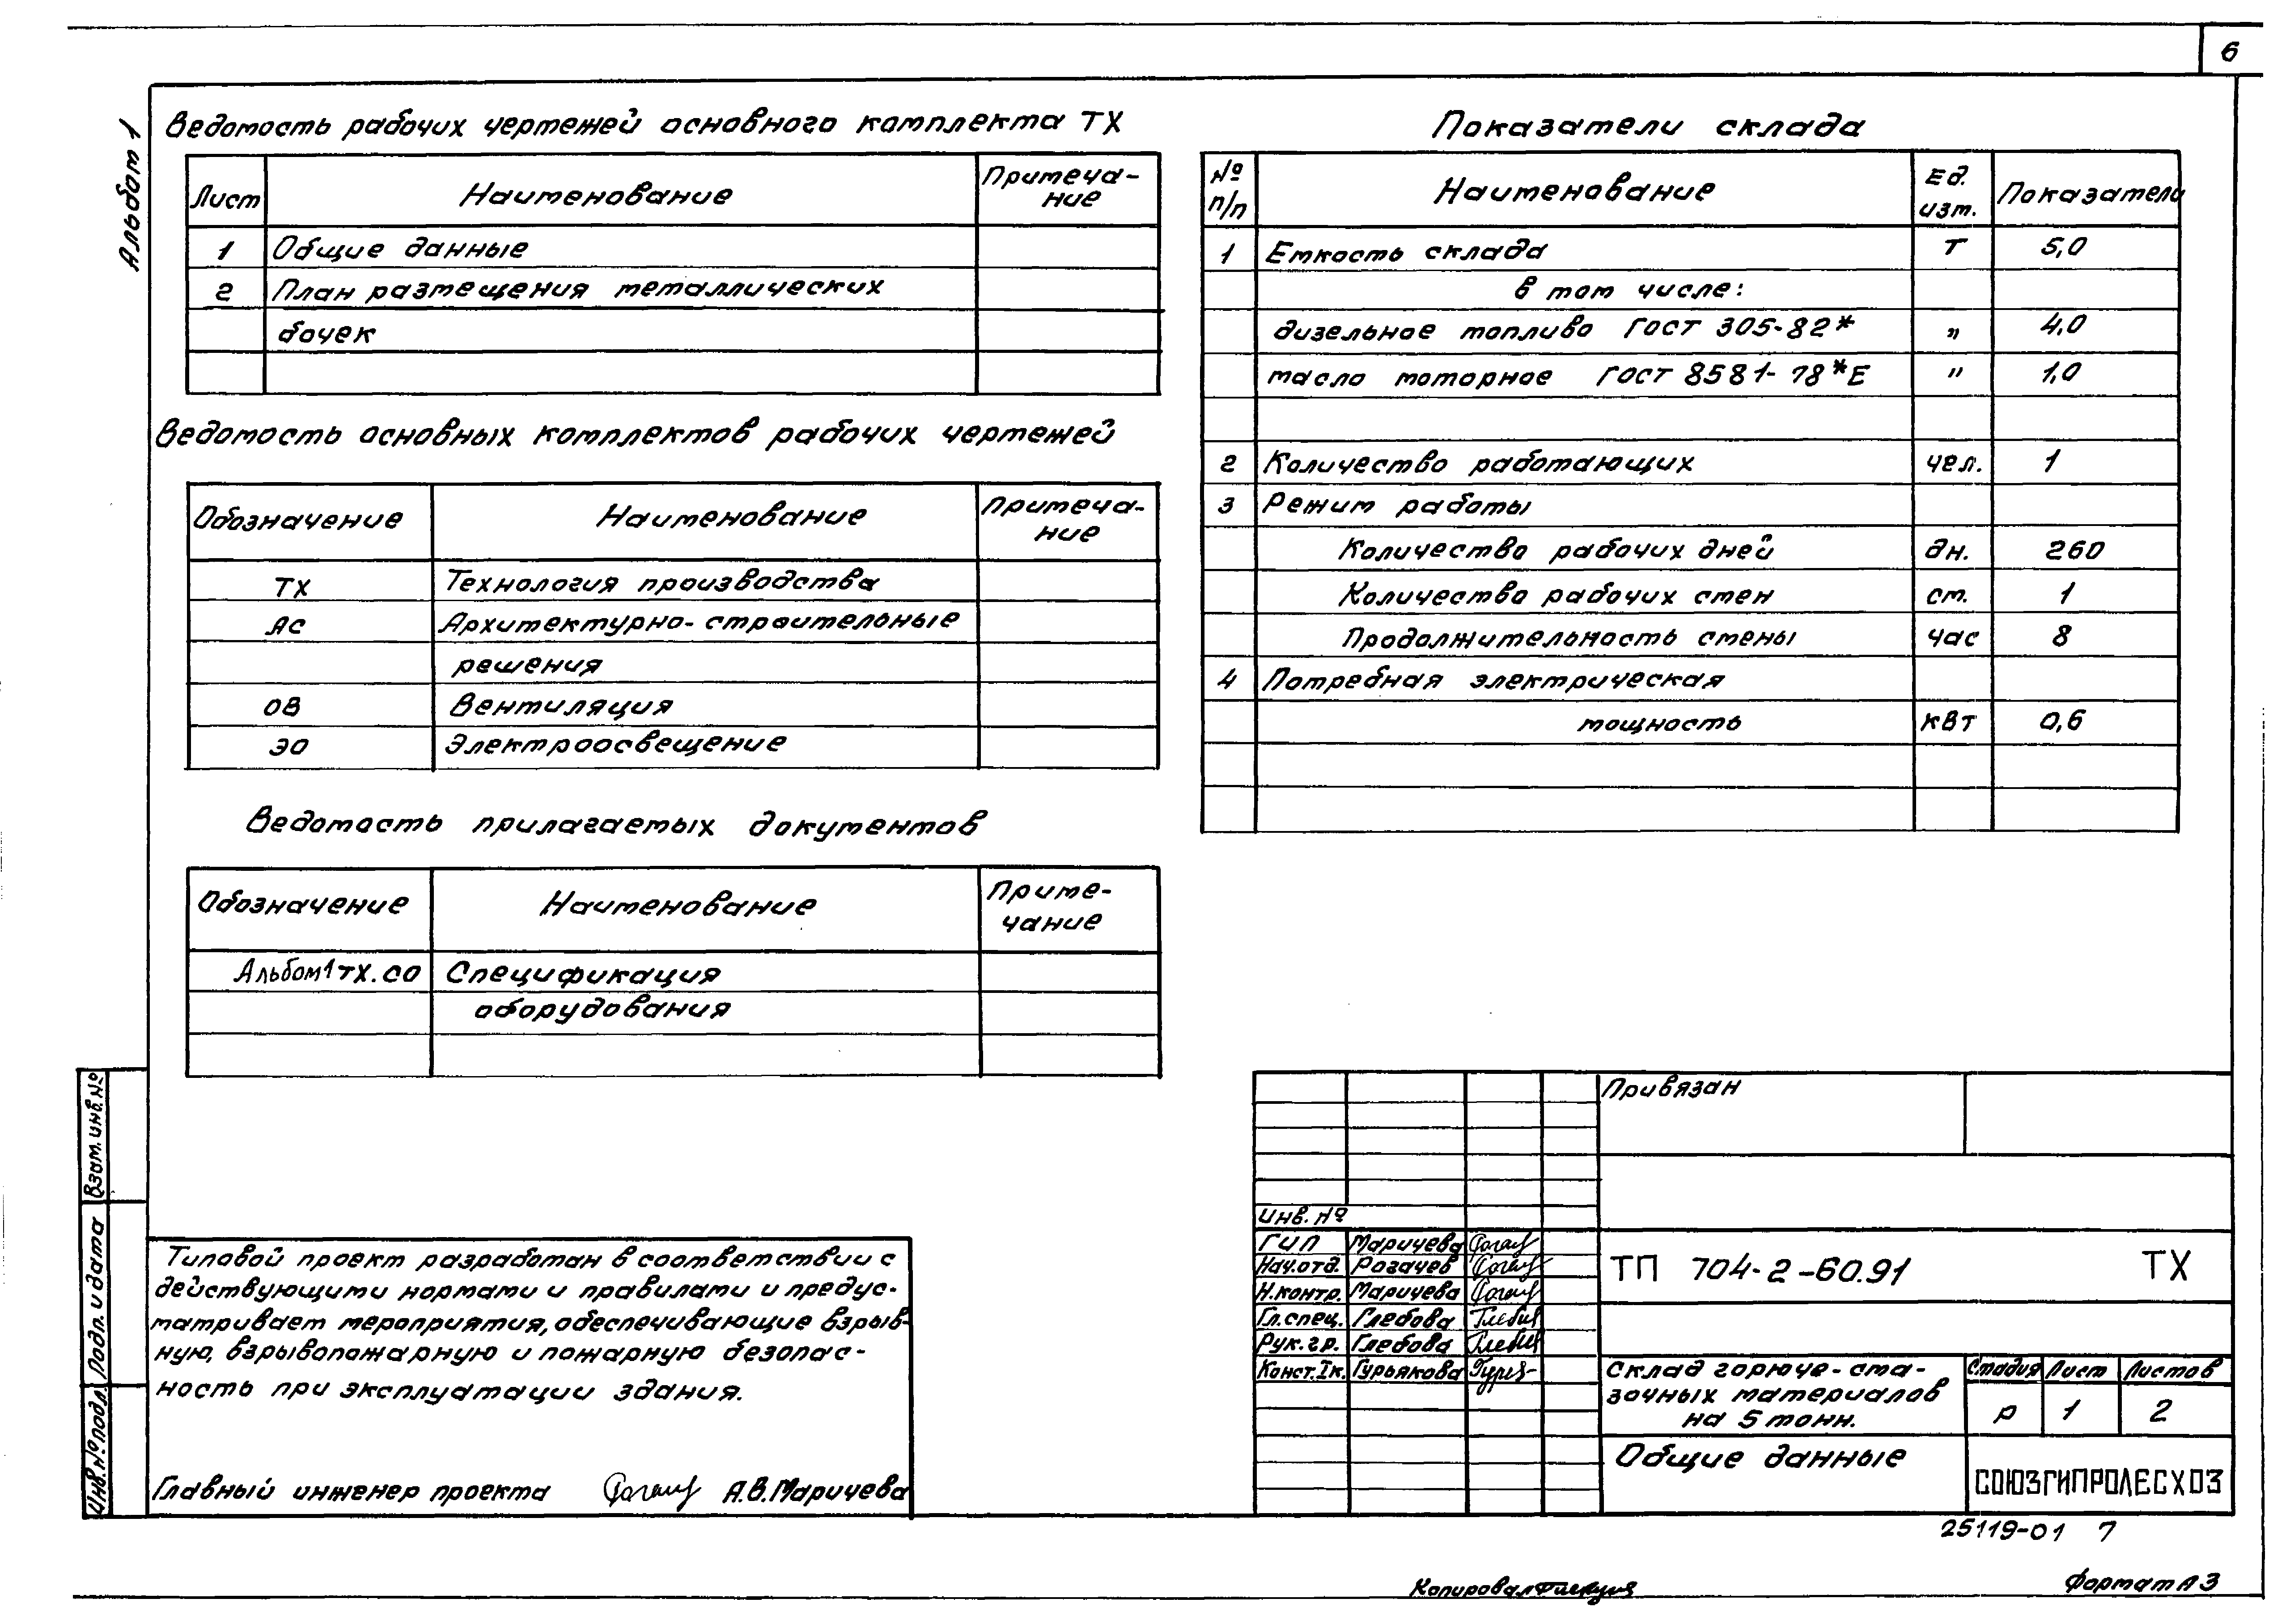 6
Альбом 1
Ведомость рабочих чертежей основного комплекта ТХ
Лист Наименование Примеча-
ние
1 Общие данные
2 План размещения металлических
бочек
Ведомость основных комплектов рабочих чертежей
Обозначение Наименование Примеча-
ние
ТХ Технология производства
АС Архитектурно-строительные
решения
ОВ Вентиляция
ЭО Электроосвещение
Ведомость прилагаемых документов
Обозначение Наименование Приме-
чание
Альбом1 ТХ.СО Спецификация
оборудования
Показатели склада
№
п/п
Наименование
Ед.
изм.
Показатели
1 Емкость склада Т 5,0
в том числе:
дизельное топливо ГОСТ 305-82* " 4,0
масло моторное ГОСТ 8581-78*Е " 1,0
2 Количество работающих чел. 1
3 Режим работы
Количество рабочих дней дн. 260
Количество рабочих смен см. 1
Продолжительность смены час 8
4 Потребная электрическая
мощность кВт 0,6
Взам. инв. №
Подп. и дата
Инв. № подл.
Типовой проект разработан в соответствии с
действующими нормами и правилами и предус-
матривает мероприятия, обеспечивающие взрыв-
ную, взрывопожарную и пожарную безопас-
ность при эксплуатации здания.
Главный инженер проекта А.В.Маричева
Привязан
Инв. №
ГИП Маричева
Нач.отд. Рогачев
Н.контр. Маричева
Гл.спец. Глебова
Рук.гр. Глебова
Конст.Iк. Гурьякова
ТП 704-2-60.91 ТХ
Склад горюче-сма-
зочных материалов
на 5 тонн.
Стадия Лист Листов
Р 1 2
Общие данные
СОЮЗГИПРОЛЕСХОЗ
25119-01 7
Копировал
Формат А3